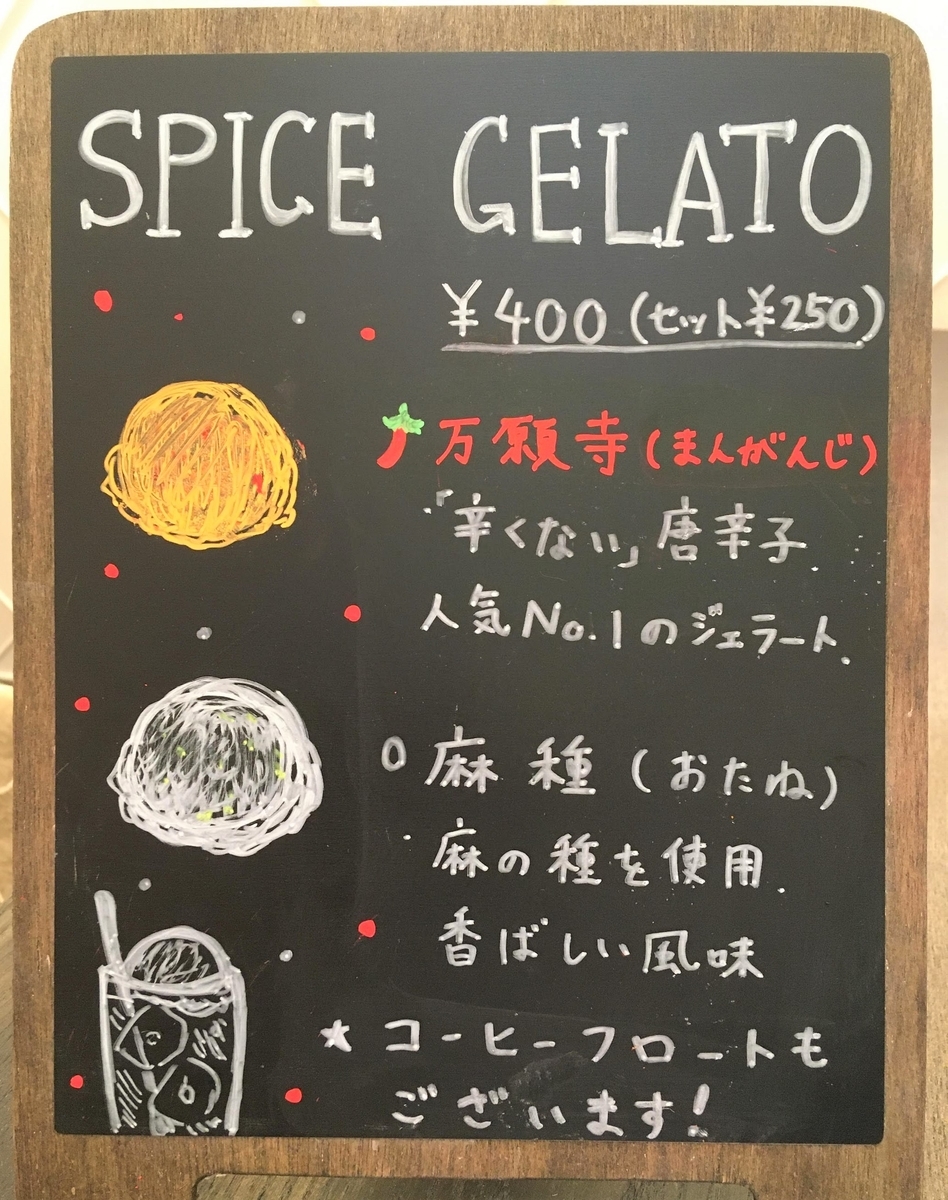 SPICE GELATO
¥400(セット¥250)
万願寺(まんがんじ)
「辛くない」唐辛子
人気No.1のジェラート.
麻種(おたね)
麻の種を使用.
香ばしい風味
★コーヒーフロートも
ございます!